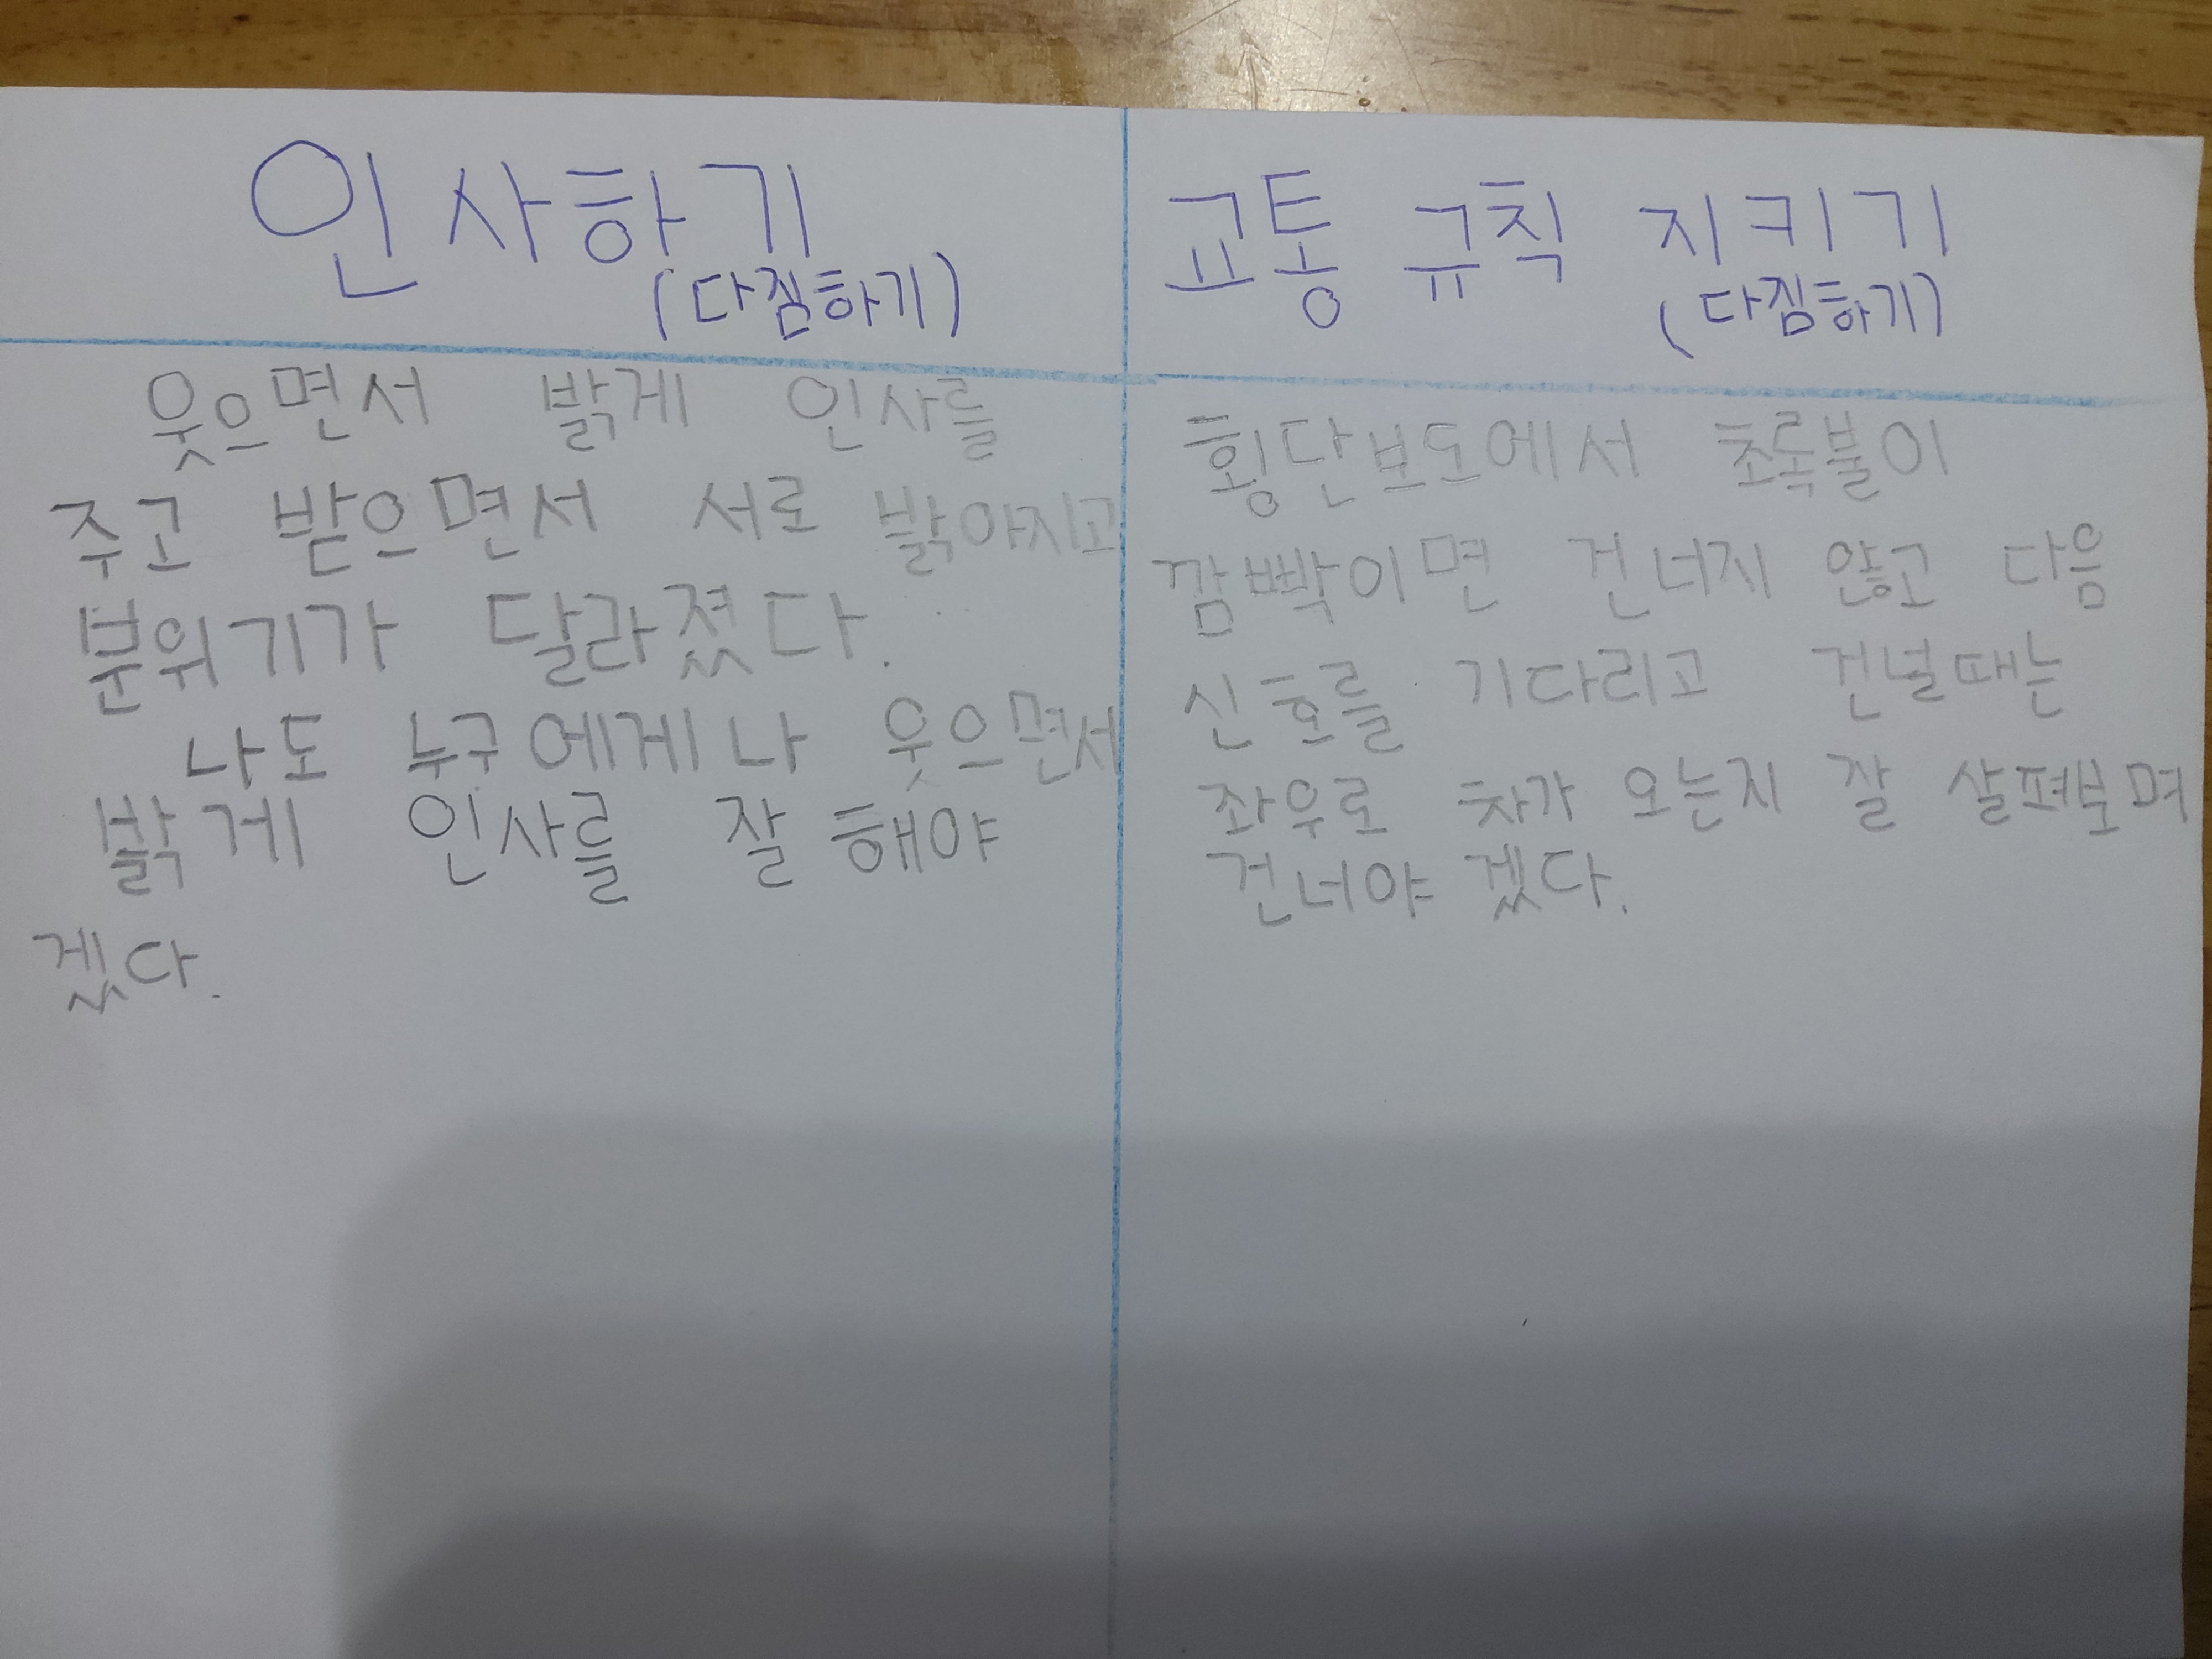 인사하기
(다짐하기)
웃으면서 밝게 인사를
주고 받으면서 서로 밝아지고
분위기가 달라졌다.
나도 누구에게나 웃으면서
밝게 인사를 잘 해야
겠다.
교통 규칙 지키기
(다짐하기)
횡단보도에서 초록불이
깜빡이면 건너지 않고 다음
신호를 기다리고 건널때는
좌우로 차가 오는지 잘 살펴보며
건너야 겠다.